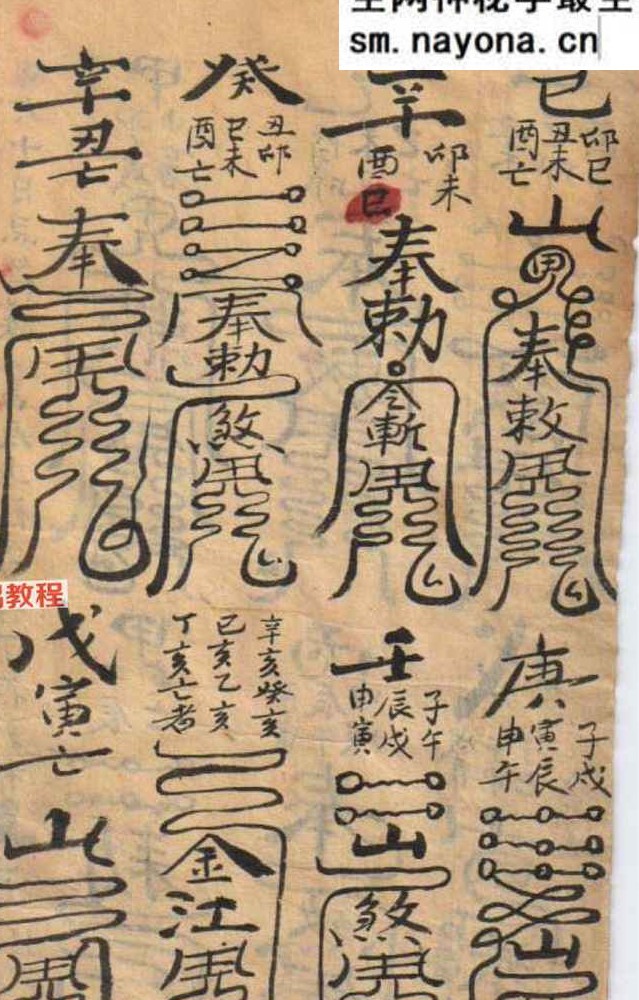 sm.nayona.cn
己
卯巳
丑未
酉亡
山
奉敕
辛
卯未
酉巳
奉勅
令斬
癸
丑卯
巳未
酉亡
奉勅
煞
辛丑亡
奉
庚
子戌
寅辰
申午
山
壬
子午
辰戌
申寅
山
煞
辛亥癸亥
己亥乙亥
丁亥亡者
金江
戊寅亡
山
教程